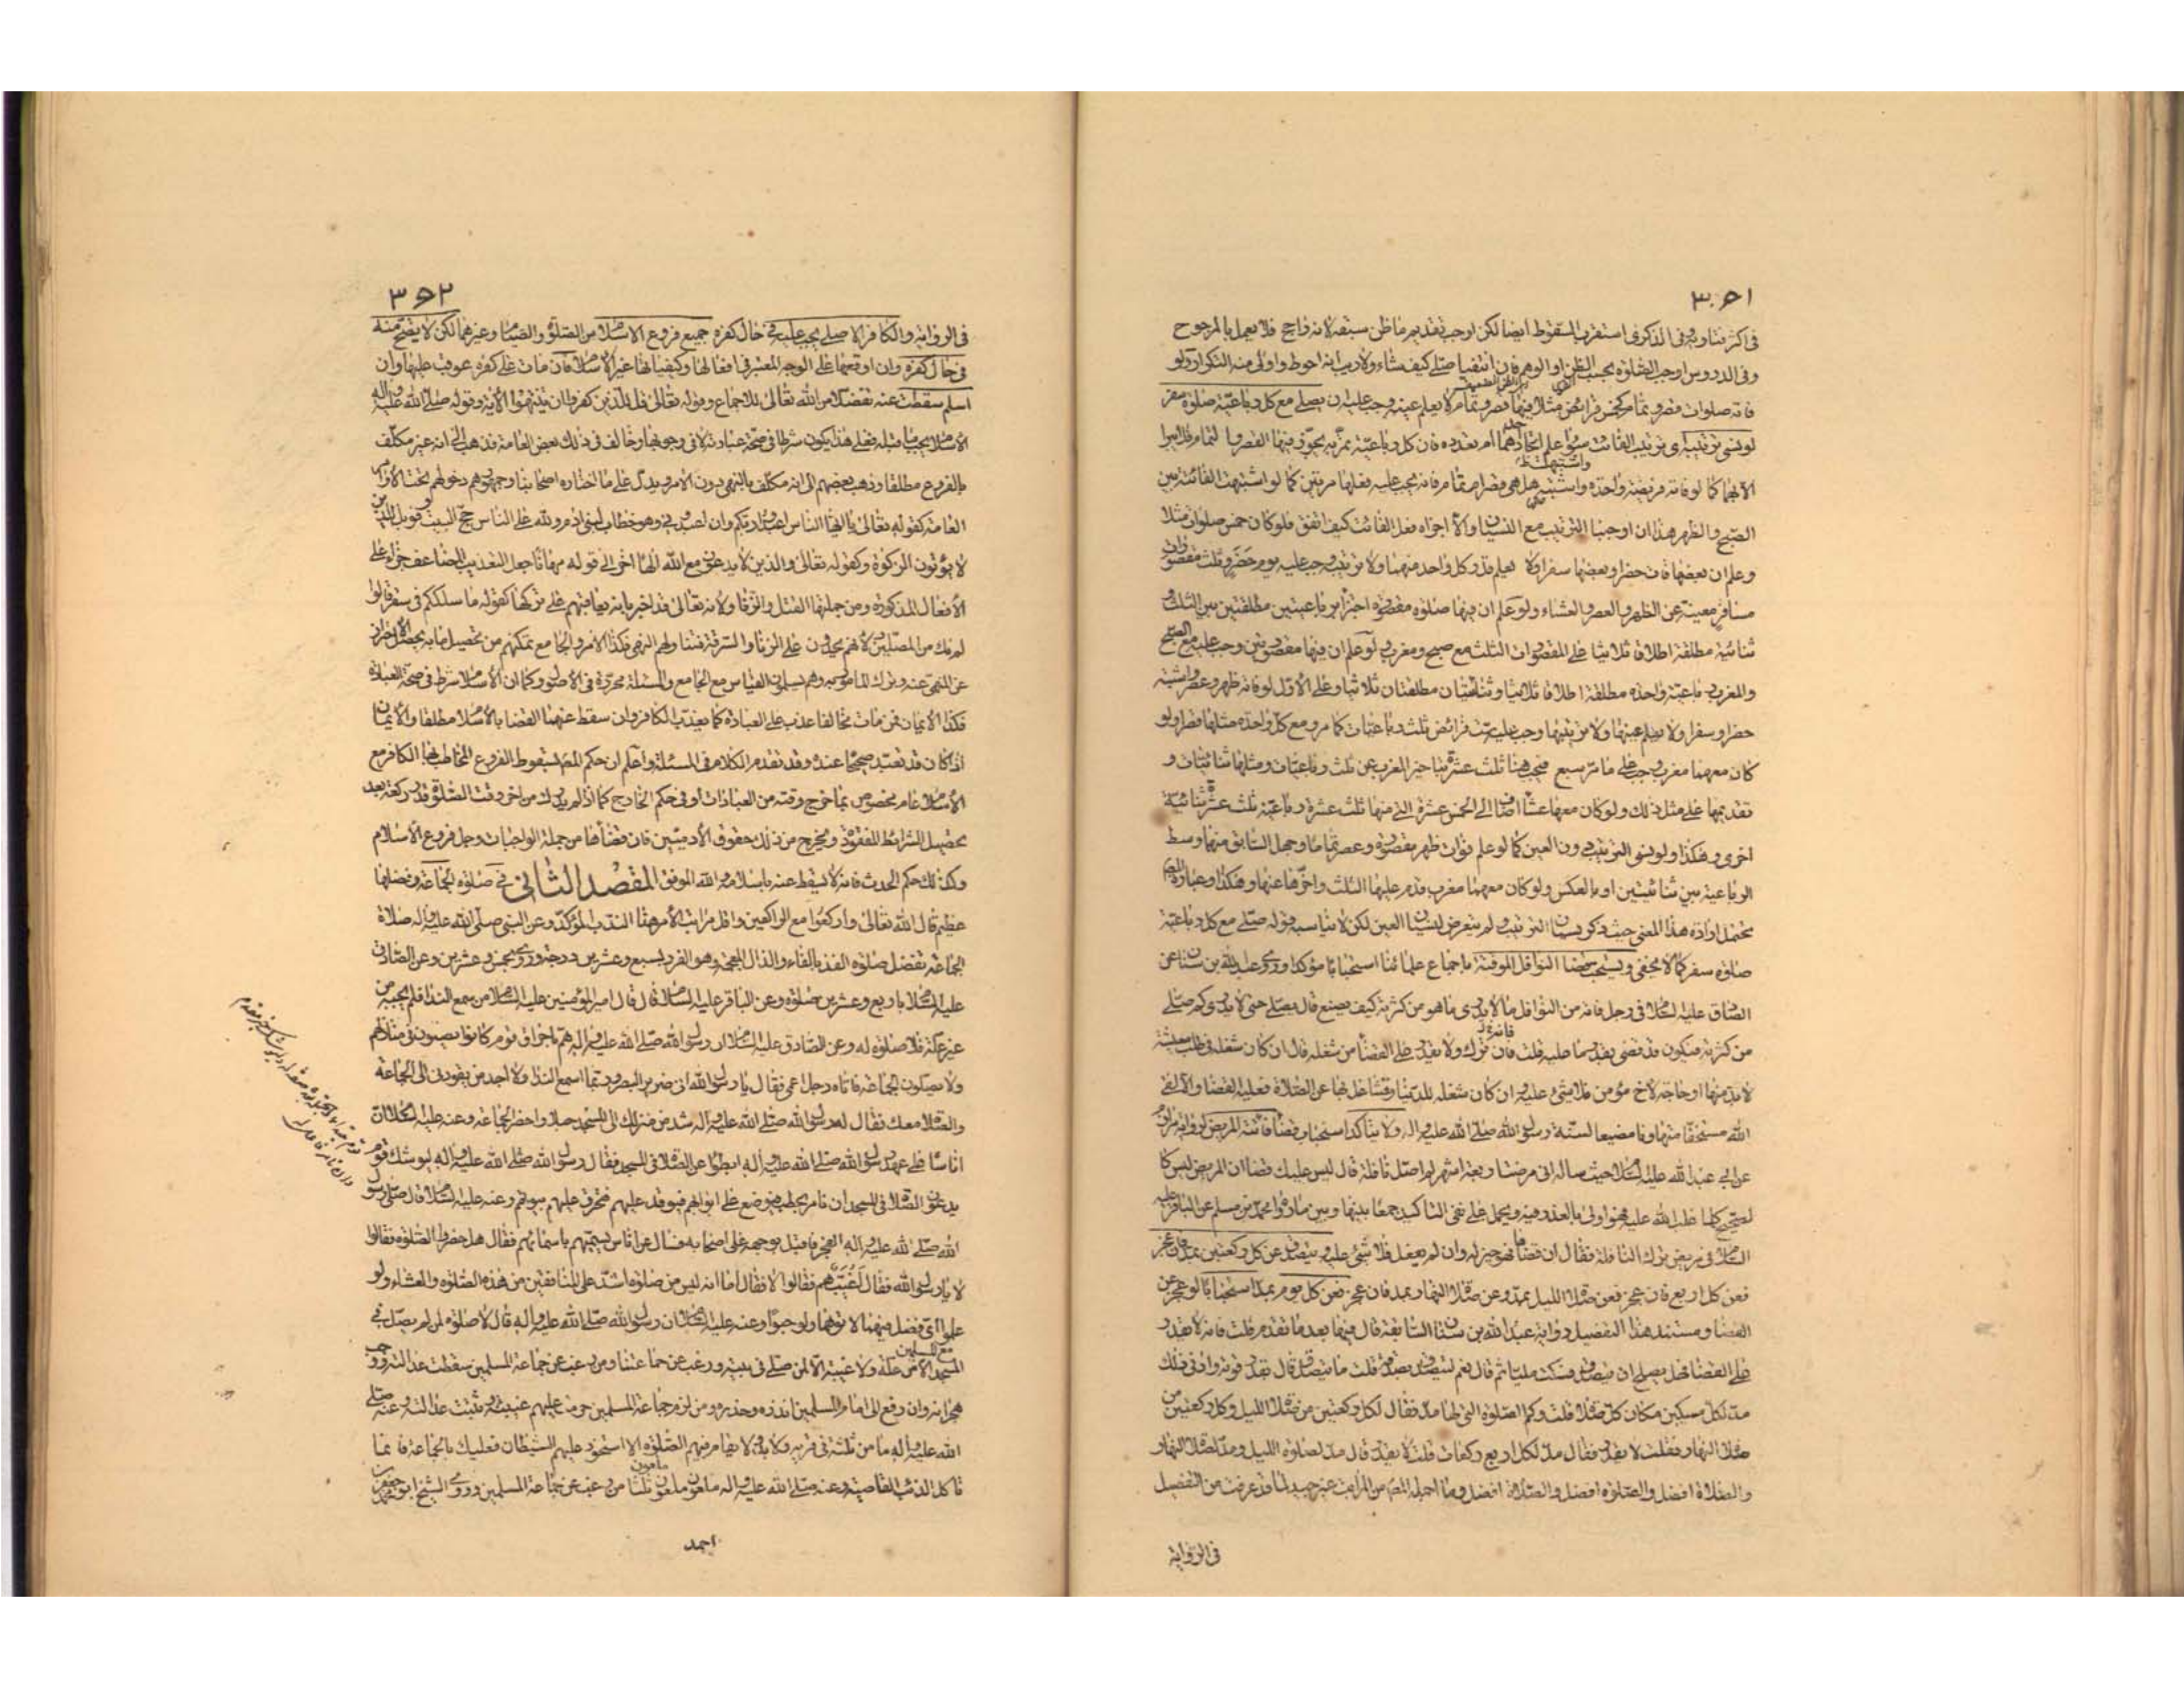 ٣٥١
في اكثر فتاويه وفى الذكرى استقرب السقوط ايضا لكن اوجب تقديم ما ظن سبقه لانه راجح فلا يعمل بالمرجوح
وفى الدروس اوجب الصلوة بحسب الظن او الوهم فان انتفيا صلى كيف شاء ولا ريب انه احوط واولى منه التكرار ولو
فاته صلوات قصر وتمام كخمس فرائض مثلا فيها قصر وتمام لا يعلم عينه وجب عليه ان يصلى مع كل رباعية صلوة سفر
لو نسى ترتيبه اى ترتيب الفائت سواء علم اتحاد هما ام تعدده فان كل رباعية يمر به يجوز فيها القصر والتمام فلا يبرا
الا بهما كما لو فاته فريضة واحدة واشتبه هل هى قصر ام تمام فانه يجب عليه فعلها مرتين كما لو اشتبهت الفائتة بين
الصبح والظهر هذا ان اوجبنا الترتيب مع النسيان والا اجزاه فعل الفائت كيف اتفق فلو كان خمس صلوات مثلا
وعلم ان بعضها فات حضرا وبعضها سفرا ولا يعلم قدر كل واحد منهما ولا ترتيبه وجب عليه يوم حضر وثلث مقصورات
مسافر معينة عن الظهر والعصر والعشاء ولو علم ان فيها صلوة مقصورة اجتزأ برباعيتين مطلقتين بين الثلث و
ثنائية مطلقة اطلاقا ثلاثيا على المقصورات الثلث مع صبح ومغرب ولو علم ان فيها مقصورتين وجب عليه مع الصبح
والمغرب رباعية واحدة مطلقة اطلاقا ثلاثيا وثنائيتان مطلقتان ثلاثيا وعلى الاول لو فاته ظهر وعصر واشتبه
حضرا وسفرا ولا يعلم عينهما ولا ترتيبهما وجب عليه ست فرائض ثلث رباعيات كما مر ومع كل واحدة مثلها قصرا ولو
كان معهما مغرب وجب على ما مر سبع فيجب هنا ثلث عشرة بتاخير المغرب عن ثلث رباعيات ومثلها ثنائيات و
تقديمها على مثل ذلك ولو كان معها عشا اضاف الى الخمس عشرة التى منها ثلث عشرة رباعية ثلث عشرة ثنائية
اخرى وهكذا ولو نسى الترتيب دون العين كما لو علم فوات ظهر مقصورة وعصر تماما وجهل السابق منهما وسط
الرباعية بين ثنائيتين او بالعكس ولو كان معهما مغرب قدم عليها الثلث واخرها عنها وهكذا وعبارة المصنف
تحتمل ارادة هذا المعنى حيث ذكر نسيان الترتيب ولم يتعرض لنسيان العين لكن لا يناسبه قوله صلى مع كل رباعية
صلوة سفر كما لا يخفى ويستحب قضا النوافل الموقتة باجماع علمائنا استحبابا مؤكدا وروى عبد الله بن سنان عن
الصادق عليه السلام فى رجل فاته من النوافل ما لا يدرى ما هو من كثرته كيف يصنع قال يصلى حتى لا يدرى كم صلى
من كثرته فيكون قد قضى بقدر ما عليه قلت فانه ترك ولا يقدر على القضا من شغله قال ان كان شغله فى طلب معيشة
لا بد منها او حاجة لاخ مؤمن فلا شئ عليه وان كان شغله للدنيا وتشاغل بها عن الصلاة فعليه القضا والا لقى
الله مستخفا متهاونا مضيعا لسنة رسول الله صلى الله عليه واله ولا يتاكد استحباب قضا فائتة المريض لرواية مرازم
عن ابى عبد الله عليه السلام حيث ساله انى مرضت اربعة اشهر لم اصل نافلة قال ليس عليك قضا ان المريض ليس كا
لصحيح كلما غلب الله عليه فهو اولى بالعذر فيه ويحمل على نفى التاكيد جمعا بينها وبين ما رواه محمد بن مسلم عن الباقر عليه
السلام فى مريض ترك النافلة فقال ان قضاها فهو خير له وان لم يفعل فلا شئ عليه ويتصدق عن كل ركعتين بمد فان عجز
فعن كل اربع فان عجز فعن صلاة الليل بمد وعن صلاة النهار بمد فان عجز فعن كل يوم بمد استحبابا لو عجز عن
القضا ومستند هذا التفصيل رواية عبد الله بن سنان السابقة قال فيها بعد ما تقدم قلت فانه لا يقدر
على القضا فهل يصلح ان يتصدق فسكت مليا ثم قال نعم ليتصدق بصدقة قلت ما يتصدق قال بقدر قوته وادنى ذلك
مد لكل مسكين مكان كل صلاة قلت وكم الصلوة التى لها مد فقال لكل ركعتين من صلاة الليل وكل ركعتين من
صلاة النهار فقلت لا يقدر فقال مد لكل اربع ركعات قلت لا يقدر قال مد لصلوة الليل ومد لصلاة النهار
والصلاة افضل والصلوة افضل والصلاة افضل وما اجمله المصنف من المراتب غير جيد لما قد عرفت من التفصيل
فى الرواية
٣٥٢
فى الرواية والكافر الاصلى يجب عليه فى حال كفره جميع فروع الاسلام من الصلوة والصيام وغيرهما لكن لا يصح منه
فى حال كفره وان اوقعها على الوجه المعتبر فى افعالها وكيفياتها غير الاسلام فان مات على كفره عوقب عليها وان
اسلم سقطت عنه تفضلا من الله تعالى للاجماع وقوله تعالى قل للذين كفروا ان ينتهوا الاية وقوله صلى الله عليه واله
الاسلام يجب ما قبله فعلى هذا يكون شرطا فى صحة عباداته لا فى وجوبها وخالف فى ذلك بعض العامة فذهب الى انه غير مكلف
بالفروع مطلقا وذهب بعضهم الى انه مكلف بالنهى دون الامر ويدل على ما اختاره اصحابنا وجمهورهم دخولهم تحت الاوامر
العامة كقوله تعالى يا ايها الناس اعبدوا ربكم وان اعبدونى وهو خطاب لبنى ادم ولله على الناس حج البيت وويل للذين
لا يؤتون الزكوة وكقوله تعالى والذين لا يدعون مع الله الها اخر الى قوله مهانا جعل التعذيب المضاعف جزاء على
الافعال المذكورة ومن جملتها القتل والزنا ولانه تعالى قد اخبر بانه يعاقبهم على تركها كقوله ما سلككم فى سقر قالوا
لم نك من المصلين ولانهم يحدون على الزنا والسرقة فتناولهم النهى فكذا الامر والجامع تمكنهم من تحصيل ما به يحصل الاحتراز
عن المنهى عنه وترك المامور به وهم يسلمون القياس مع الجامع والمسئلة محررة فى الاصول وكما ان الاسلام شرط فى صحة العبادة
فكذا الايمان فمن مات مخالفا عذب على العبادة كما يعذب الكافر وان سقط عنهما القضا بالاسلام مطلقا والايمان
اذا كان قد تعبد صحيحا عنده وقد تقدم الكلام فى المسئلة واعلم ان حكم المصنف بسقوط الفروع المخاطب بها الكافر مع
الاسلام عام مخصوص بما خرج وقته من العبادات او فى حكم الخارج كما اذا لم يدرك من اخر وقت الصلوة قدر ركعة بعد
تحصيل الشرائط المفقودة ويخرج من ذلك حقوق الادميين فان قضاها من جملة الواجبات وجل فروع الاسلام
وكذلك حكم الحدث فانه لا يسقط عنه باسلامه والله الموفق المقصد الثانى فى صلوة الجماعة وفضلها
عظيم قال الله تعالى واركعوا مع الراكعين واقل مراتب الامر هنا الندب المؤكد وعن النبى صلى الله عليه واله صلاة
الجماعة تفضل صلوة الفذ بالفاء والذال المعجمة وهو الفرد بسبع وعشرين درجة وروى بخمس وعشرين وعن الصادق
عليه السلام باربع وعشرين صلوة وعن الباقر عليه السلام قال قال امير المؤمنين عليه السلام من سمع الندا فلم يجبه من
غير علة فلا صلوة له وعن الصادق عليه السلام ان رسول الله صلى الله عليه واله هم باحراق قوم كانوا يصلون فى منازلهم
ولا يصلون الجماعة فاتاه رجل اعمى فقال يا رسول الله انى ضرير البصر وربما اسمع الندا ولا اجد من يقودنى الى الجماعة
والصلاة معك فقال له رسول الله صلى الله عليه واله شد من منزلك الى المسجد حبلا واحضر الجماعة وعنه عليه السلام ان
اناسا على عهد رسول الله صلى الله عليه واله ابطؤا عن الصلاة فى المسجد فقال رسول الله صلى الله عليه واله ليوشك قوم
يدعون الصلاة فى المسجد ان نامر بحطب فيوضع على ابوابهم فيوقد عليهم فتحرق عليهم بيوتهم وعنه عليه السلام قال صلى رسول
الله صلى الله عليه واله الفجر فاقبل بوجهه على اصحابه فسال عن اناس يسميهم باسمائهم فقال هل حضروا الصلوة فقالوا
لا يا رسول الله فقال اغيب هم فقالوا لا فقال اما انه ليس من صلوة اشد على المنافقين من هذه الصلوة والعشاء ولو
علموا اى فضل فيهما لاتوهما ولو حبوا وعنه عليه السلام ان رسول الله صلى الله عليه واله قال لا صلوة لمن لم يصل فى
المسجد الا من علة ولا غيبة الا لمن صلى فى بيته ورغب عن جماعتنا ومن رغب عن جماعة المسلمين سقطت عدالته ووجب
هجرانه وان رفع الى امام المسلمين انذره وحذره ومن لزم جماعة المسلمين حرمت عليهم غيبته وثبتت عدالته وعنه صلى
الله عليه واله ما من ثلثة فى قرية ولا بدو لا يقام فيهم الصلوة الا استحوذ عليهم الشيطان فعليك بالجماعة فانما
ياكل الذئب القاصية وعنه صلى الله عليه واله ملعون ملعون ثلثا من رغب عن جماعة المسلمين وروى الشيخ ابو محمد جعفر بن
احمد